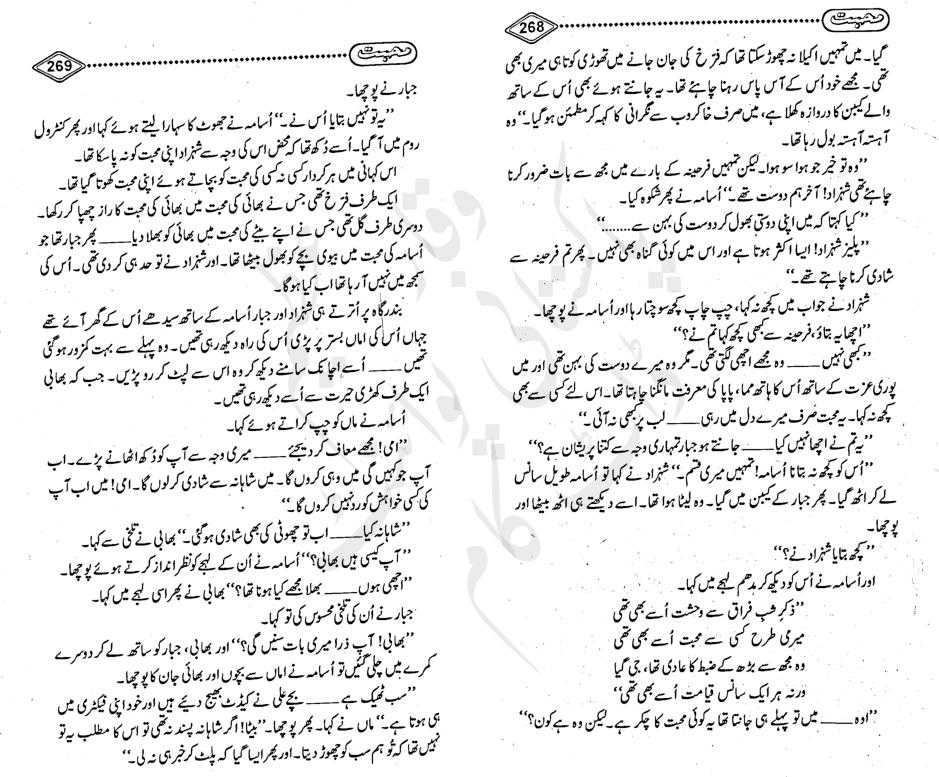 محبت
268
گیا۔ میں تمہیں اکیلا نہ چھوڑ سکتا تھا کہ فرخ کی جان جانے میں تھوڑی کوتاہی میری بھی
تھی۔ مجھے خود اُس کے آس پاس رہنا چاہئے تھا۔ یہ جانتے ہوئے بھی اُس کے ساتھ
والے کیبن کا دروازہ کھلا ہے، میں صرف خاکروب سے نگرانی کا کہہ کر مطمئن ہو گیا۔‘‘ وہ
آہستہ آہستہ بول رہا تھا۔
’’وہ تو خیر جو ہوا سو ہوا۔ لیکن تمہیں فرحینہ کے بارے میں مجھ سے بات ضرور کرنا
چاہئے تھی شہزاد! آخر ہم دوست تھے۔‘‘ اُسامہ نے پھر شکوہ کیا۔
’’کیا کہتا کہ میں اپنی دوستی بھول کر دوست کی بہن سے........‘‘
’’پلیز شہزاد! ایسا اکثر ہوتا ہے اور اس میں کوئی گناہ بھی نہیں۔ پھر تم فرحینہ سے
شادی کرنا چاہتے تھے۔‘‘
شہزاد نے جواب میں کچھ نہ کہا، چپ چاپ کچھ سوچتا رہا اور اُسامہ نے پوچھا۔
’’اچھا یہ بتاؤ، فرحینہ سے کبھی کچھ کہا تم نے؟‘‘
’’کبھی نہیں ____ وہ مجھے اچھی لگتی تھی۔ مگر وہ میرے دوست کی بہن تھی اور میں
پوری عزت کے ساتھ اُس کا ہاتھ مما، پاپا کی معرفت مانگنا چاہتا تھا۔ اس لئے کسی سے بھی
کچھ نہ کہا۔ یہ محبت صرف میرے دل میں رہی ____ لب پر کبھی نہ آئی۔‘‘
’’یہ تم نے اچھا نہیں کیا ____ جانتے ہو جبار تمہاری وجہ سے کتنا پریشان ہے؟‘‘
’’اُس کو کچھ نہ بتانا اُسامہ! تمہیں میری قسم۔‘‘ شہزاد نے کہا تو اُسامہ طویل سانس
لے کر اٹھ گیا۔ پھر جبار کے کیبن میں گیا۔ وہ لیٹا ہوا تھا۔ اسے دیکھتے ہی اٹھ بیٹھا اور
پوچھا۔
’’کچھ بتایا شہزاد نے؟‘‘
اور اُسامہ نے اُس کو دیکھ کر مدھم لہجے میں کہا۔
’’ذکرِ شبِ فراق سے وحشت اُسے بھی تھی
میری طرح کسی سے محبت اُسے بھی تھی
وہ مجھ سے بڑھ کے ضبط کا عادی تھا، جی گیا
ورنہ ہر ایک سانس قیامت اُسے بھی تھی‘‘
’’اوہ ____ میں تو پہلے ہی جانتا تھا یہ کوئی محبت کا چکر ہے۔ لیکن وہ ہے کون؟‘‘
محبت
269
جبار نے پوچھا۔
’’یہ تو نہیں بتایا اُس نے۔‘‘ اُسامہ نے جھوٹ کا سہارا لیتے ہوئے کہا اور پھر کنٹرول
روم میں آ گیا۔ اُسے دُکھ تھا کہ محض اس کی وجہ سے شہزاد اپنی محبت کو نہ پا سکا تھا۔
اس کہانی میں ہر کردار کسی نہ کسی کی محبت کو بچاتے ہوئے اپنی محبت کھوتا گیا تھا۔
ایک طرف فرخ تھی جس نے بھائی کی محبت میں بھائی کی محبت کا راز چھپا کر رکھا۔
دوسری طرف گل تھی جس نے اپنے بیٹے کی محبت میں بھائی کو بھلا دیا ____ پھر جبار تھا جو
اُسامہ کی محبت میں بیوی بچے کو بھول بیٹھا تھا۔ اور شہزاد نے تو حد ہی کر دی تھی۔ اُس کی
سمجھ میں نہیں آ رہا تھا اب کیا ہو گا۔
بندرگاہ پر اُترتے ہی شہزاد اور جبار اُسامہ کے ساتھ سیدھے اُس کے گھر آئے تھے
جہاں اُس کی اماں بستر پر پڑی اُس کی راہ دیکھ رہی تھیں۔ وہ پہلے سے بہت کمزور ہو گئی
تھیں ____ اُسے اچانک سامنے دیکھ کر وہ اس سے لپٹ کر رو پڑیں۔ جب کہ بھابی
ایک طرف کھڑی حیرت سے اُسے دیکھ رہی تھیں۔
اُسامہ نے ماں کو چپ کراتے ہوئے کہا۔
’’امی! مجھے معاف کر دیجئے ____ میری وجہ سے آپ کو دُکھ اٹھانے پڑے۔ اب
آپ جو کہیں گی میں وہی کروں گا۔ میں شاہانہ سے شادی کر لوں گا۔ امی! میں اب آپ
کی کسی خواہش کو رد نہیں کروں گا۔‘‘
’’شاہانہ کیا ____ اب تو چھوٹی کی بھی شادی ہو گئی۔‘‘ بھابی نے تلخی سے کہا۔
’’آپ کیسی ہیں بھابی؟‘‘ اُسامہ نے اُن کے لہجے کو نظر انداز کرتے ہوئے پوچھا۔
’’اچھی ہوں ____ بھلا مجھے کیا ہونا تھا؟‘‘ بھابی نے پھر اسی لہجے میں کہا۔
جبار نے اُن کی تلخی محسوس کی تو کہا۔
’’بھابی! آپ ذرا میری بات سنیں گی؟‘‘ اور بھابی، جبار کو ساتھ لے کر دوسرے
کمرے میں چلی گئیں تو اُسامہ نے اماں سے بچوں اور بھائی جان کا پوچھا۔
’’سب ٹھیک ہے ____ بچے علی نے کیڈٹ بھیج دیئے ہیں اور خود اپنی فیکٹری میں
ہی ہوتا ہے۔‘‘ ماں نے کہا۔ پھر پوچھا۔ ’’بیٹا! اگر شاہانہ پسند نہ تھی تو اس کا مطلب یہ تو
نہیں تھا کہ تُو ہم سب کو چھوڑ دیتا۔ اور پھر ایسا گیا کہ پلٹ کر خبر ہی نہ لی۔‘‘